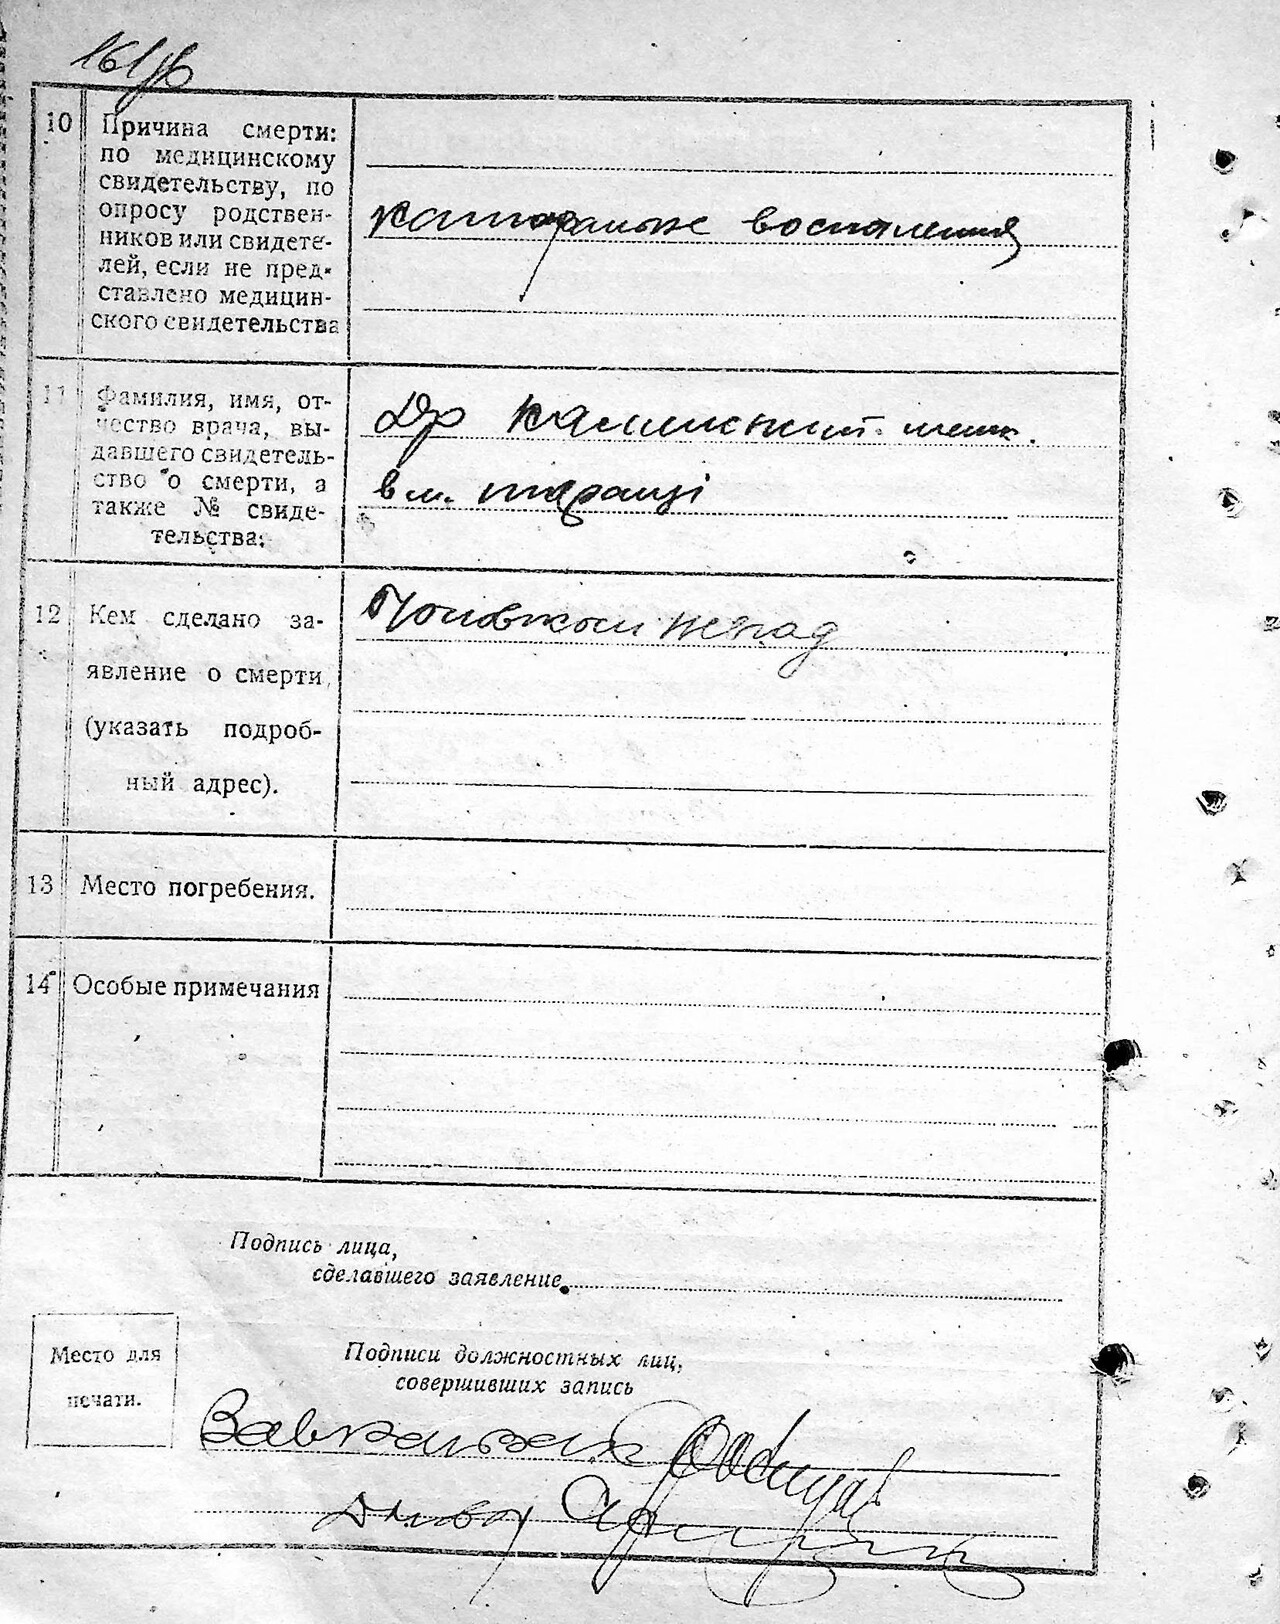 10 Причина смерти:
по медицинскому
свидетельству, по
опросу родствен-
ников или свидете-
лей, если не пред-
ставлено медицин-
ского свидетельства
Каторальне воспаления
11 Фамилия, имя, от-
чество врача, вы-
давшего свидетель-
ство о смерти, а
также № свиде-
тельства:
Др
в м.
12 Кем сделано за-
явление о смерти
(указать подроб-
ный адрес).
13 Место погребения.
14 Особые примечания
Подпись лица,
сделавшего заявление
Место для
печати.
Подписи должностных лиц,
совершивших запись